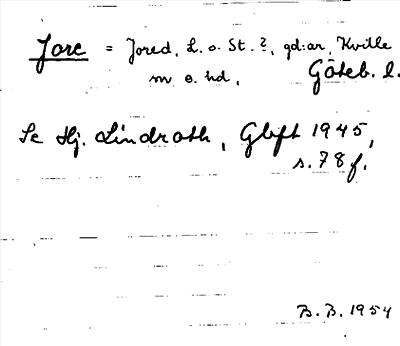 Jore = Jored, L. o. St. ?, gd:ar, Kville
m o. hd, Göteb. l.
Se Hj. Lindroth, Gbft 1945,
s. 78 f.
B. B. 1954